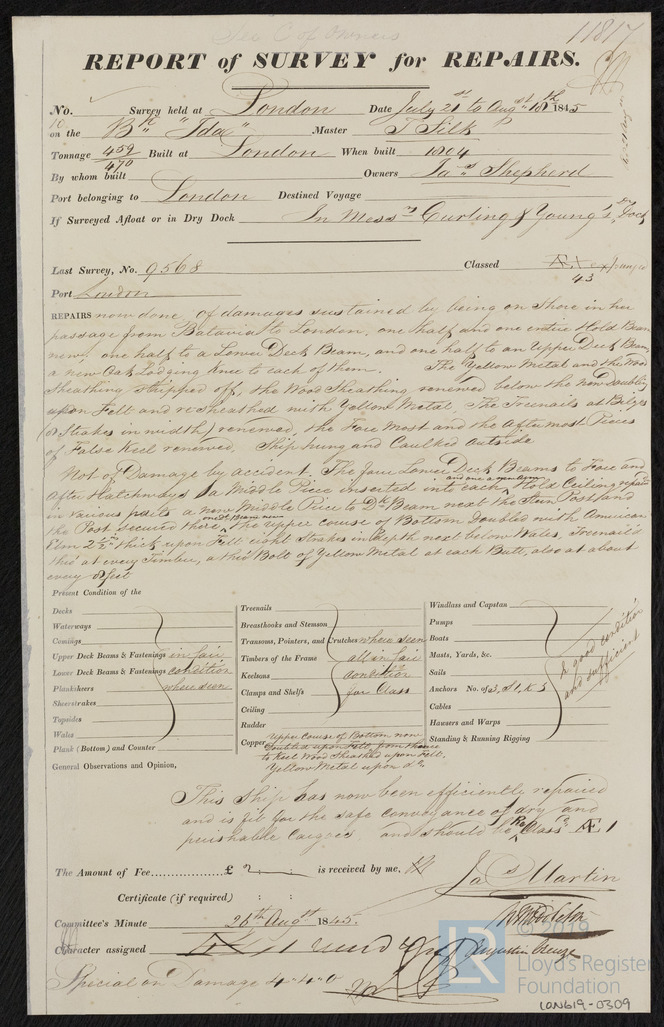 11817
REPORT of SURVEY for REPAIRS.
No. Survey held at London Date July 21st to Augst 18th 1845
on the Bk "Ida" Master J Silk
Tonnage 459 Built at London When built 1804
470
By whom built Owners Jas Shepherd
Port belonging to London Destined Voyage
If Surveyed Afloat or in Dry Dock In Messrs Curling & Young's Dry Dock
Last Survey, No. 9568 Classed Æ 1
43
Port London
REPAIRS now done, of damages sustained by being on Shore in her
passage from Batavia to London, one half and one entire Hold Beam
new, one half to a Lower Deck Beam, and one half to an Upper Deck Beam,
a new Oak Lodging Knee to each of them. The Yellow Metal and the Wood
Sheathing stripped off, the Wood Sheathing renewed below the new Doubling
upon Felt and resheathed with Yellow Metal. The Treenails at Bilges
(8 Stakes in width) renewed, the Fore Most and the Aftermost Pieces
of False Keel renewed. Ship hung and Caulked Outside
Not of Damage by accident. The four Lower Deck Beams to Fore and
After Hatchways a Middle Piece inserted into each, Hold Ceiling repaired
in various parts a new Middle Piece to Dk Beam next the Stern Post and
the Post secured there, the upper course of Bottom Doubled with American
Elm 2½ In thick upon Felt eight Strakes in depth next below Wales, Treenail'd
thro' at every Timber, a thro' Bolt of Yellow Metal at each Butt, also at about
every 8 feet
Present Condition of the
Decks
Waterways
Comings
Upper Deck Beams & Fastenings in fair
Lower Deck Beams & Fastenings condition
Planksheers where seen
Sheerstrakes
Topsides
Wales
Plank (Bottom) and Counter
Treenails
Breasthooks and Stemson
Transoms, Pointers, and Crutches where seen
Timbers of the Frame all in fair
Keelsons condition
Clamps and Shelfs for Class
Ceiling
Rudder
Copper upper course of Bottom now
doubled upon Felt, from thence
to Keel Wood Sheathed upon Felt,
Yellow Metal upon do
Windlass and Capstan
Pumps
Boats
Masts, Yards, &c.
Sails
Anchors No. of 3, S1, K3
Cables
Hawsers and Warps
Standing & Running Rigging
In good condition
and sufficient
General Observations and Opinion,
This Ship has now been efficiently repaired
and is fit for the safe conveyance of dry and
perishable cargoes, and should be Class'd Æ 1
The Amount of Fee £ 2 is received by me,
Jas Martin
Certificate (if required) : :
Committee's Minute 26th Augst 1845.
Character assigned
Augustin Creuze
Special on Damage 4.4.0
© 2019
LR
Lloyd's Register
Foundation
LON619-0309